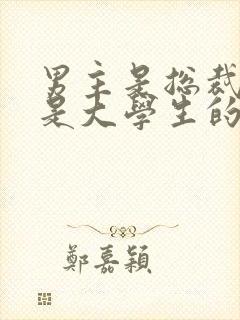 男主是总裁
是大學生的
鄭嘉穎